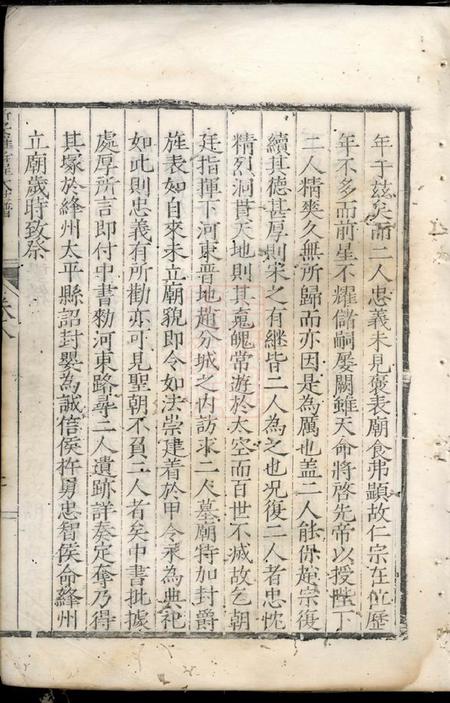 年于兹矣而二人忠義未見褒表廟食弗顯故仁宗在位歷
年不多而前星不耀儲嗣屡闕雖天命將啓先帝以授陛下
二人精爽久無所歸而亦因是為厲也盖二人能保趙宗復
續其德甚厚則宋之有継皆二人為之也况復二人者忠忱
精烈洞貫天地則其䰟魄常遊於太空而百世不滅故乞朝
廷指揮下河東晋地趙分城之内訪求二人墓廟特加封爵
旌表如自來未立廟貌即令如法崇建着於甲令永為典祀
如此則忠義有所勸亦可見聖朝不負二人者矣中書批據
處厚所言即付中書勑河東路尋二人遺跡詳奏定奪乃得
其塚於絳州太平縣詔封嬰為誠信侯杵臼忠智侯命絳州
立廟歲時致祭